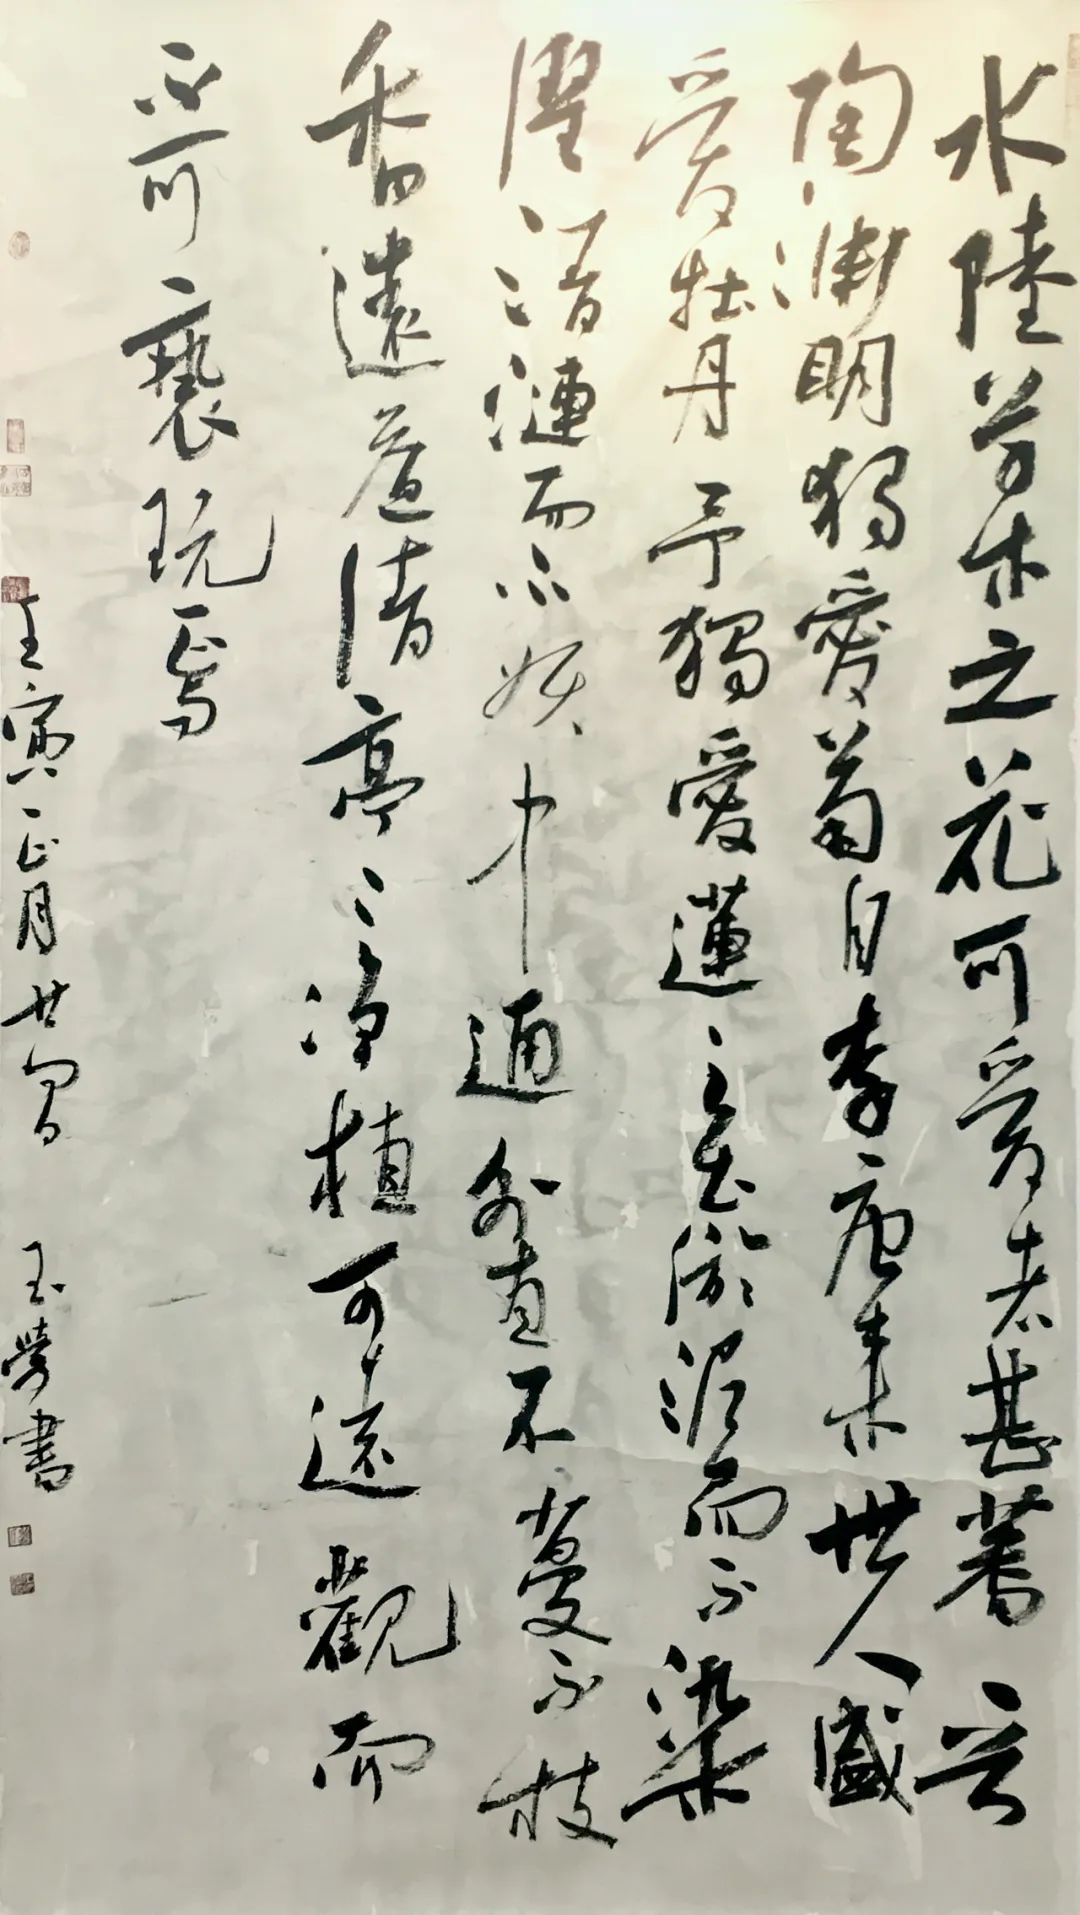 水陸草木之花可爱者甚蕃晋
陶渊明獨愛菊自李唐来世人盛
爱牡丹予獨愛蓮之出淤泥而不染
濯清漣而不妖中通外直不蔓不枝
香遠益清亭々淨植可遠觀而
不可褻玩焉
壬寅正月廿 玉榮書